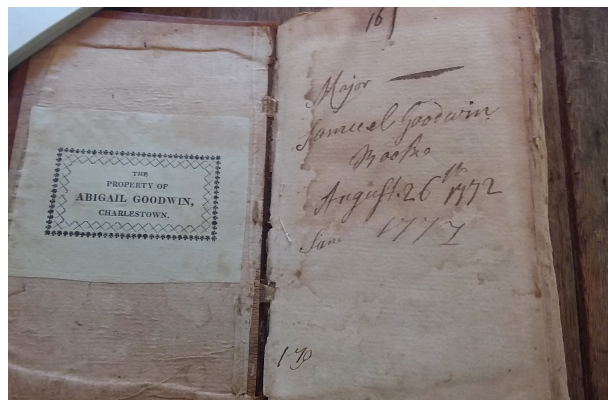 THE
PROPERTY OF
ABIGAIL GOODWIN,
CHARLESTOWN.
16
Major
Samuel Goodwin
Booke
August. 26th 1772
1772